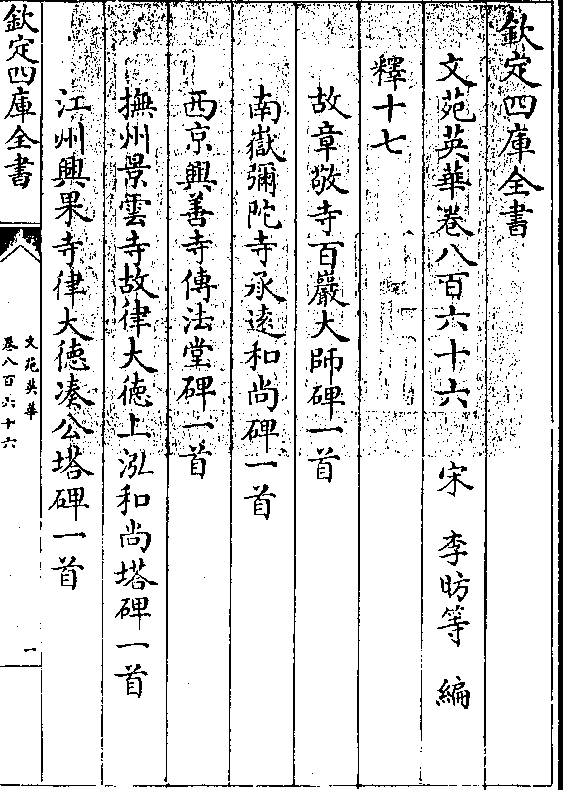 欽定四庫全書
文苑英華卷八百六十六　宋　李昉等　編
釋十七
故章敬寺百巖大師碑一首
南嶽彌陀寺承逺和尚碑一首
西京興善寺傳法堂碑一首
撫州景雲寺故律大徳上泓和尚塔碑一首
江州興果寺律大徳湊公塔碑一首
欽定四庫全書
文苑英華
卷八百六十六
一